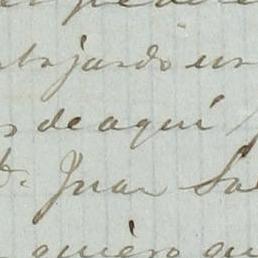 bajando un
de aquí
D. Juan Sa
quiero qu